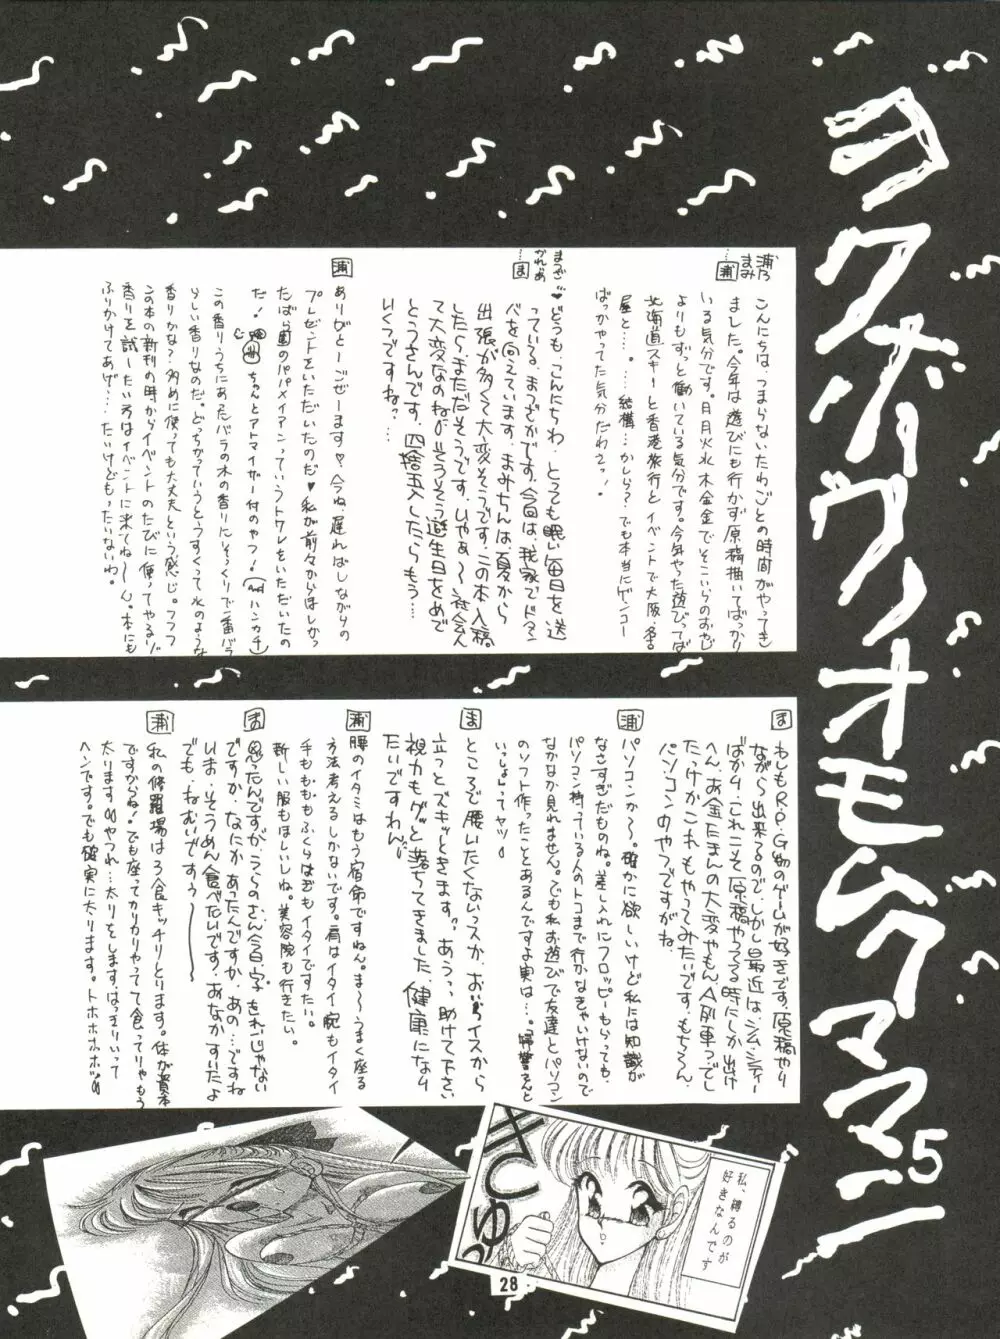 ヨクボーウノオモムクママ 5
浦乃まみ…浦
こんにちは、つまらないたわごとの時間がやってき
ました。今年は遊びにも行かず原稿描いてばっかり
いる気分です。月月火水木金金でそこいらのおやじ
よりもずっと働いている気分です。今年やった遊びってば
北海道スキーと香港旅行とイベントで大阪、名古
屋と…。……結構…かしら?でも本当にゲンコー
ばっかやってた気分だわさっ!
まつざかれあ…ま
♥どうも、こんにちわ、とっても眠い毎日を送
っている、まつざかです。今回は、我家でドタン
バを向えています。まみちんは、夏から
出張が多くて大変そうです。この本入稿
したら、まただそうです。ひゃあ〜、社会人
って大変なのね。そうそう、誕生日をめで
とうさんです。四捨五入したらもう…
いくつですね?…
浦
ありがとーごぜーます♡、今ね、遅ればしながらの
プレゼントをいただいたのだ♥私が前々からほしかっ
たばら園のパパメイアンっていうトワレをいただいたの
だ!ちゃんとアトマイザー付のやつ!(ハンカチ)
この香り、うちにあったバラの木の香りにそっくりで一番バラ
らしい香りなのだ。どっちかっていうとうすくって水のような
香りかな?多めに使っても大丈夫という感じ。フフフ
この本の新刊の時からイベントのたびに使ってやるゾ
香りを試したい方はイベントに来てね〜ん。本にも
ふりかけてあげ…たいけどもったいないわ。
ま
わしもR.P.G物のゲームが好きです。原稿やり
ながら出来るので、しかし最近は、シムシティー
ばかり、これこそ原稿やってる時にしか出け
へん、お金たまんの大変やもん、A列車っでし
たっけか、これもやってみたいです。もちろん、
パソコンのやつですがね。
浦
パソコンか〜。確かに欲しいけど私には知識が
なさすぎだものね。差し入れにフロッピーもらっても、
パソコン持っている人のトコまで行かなきゃいけないので
なかなか見れません。でも私お遊びで友達とパソコン
のソフト作ったことあるんですよ実は…。
いっしょしってヤツ
ま
ところで腰いたくないっスか、おいらイスから
立っとズキッときます。あうっっ、助けて下さい
視力もグッと落ちてきました、健康になり
たいですわん
浦
腰のイタミはもう宿命ですねん。ま〜うまく座る
方法考えるしかないです。肩はイタイ腕もイタイ
手もももふくらはぎもイタイですたい。
新しい服もほしいしね。美容院も行きたい。
ま
思ったんですが、うらのさん今日、字きれいじゃない
ですか、なんかあったんですか、あの…ですね
いま、そうめん食べたいです、おなかすいたよ
でも、ねむいですぅ〜
浦
私の修羅場は3食キッチリとります。体が資本
ですからね!でも座ってカリカリやってて食ってりゃもう
太りますやつれ…太りとします。はっきりいって
ヘンです。でも確実に太ります。トホホホホ。
私、縛るのが
好きなんです
28